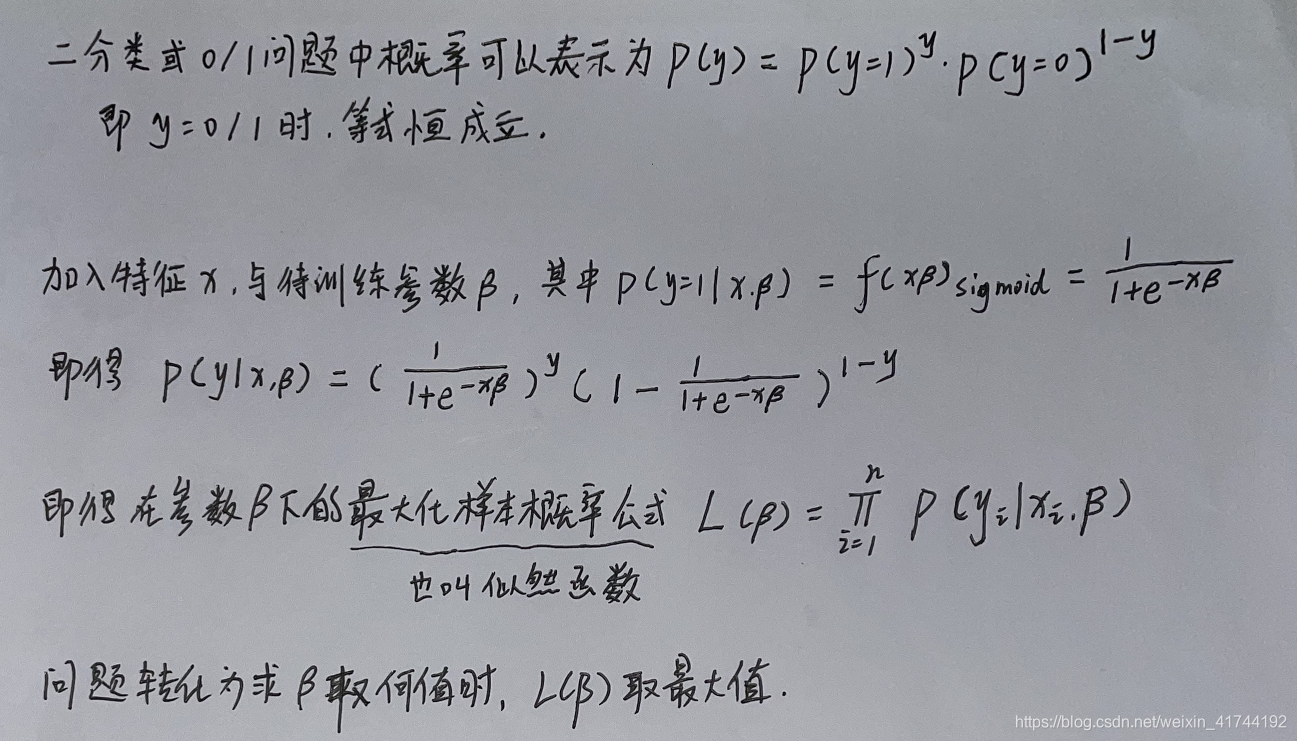 二分类或0/1问题中概率可以表示为 P(y) = P(y=1)^y · P(y=0)^{1-y}
即 y=0/1时.等式恒成立.
加入特征x.与待训练参数β, 其中 P(y=1|x.β) = f(xβ)_{sigmoid} = \frac{1}{1+e^{-xβ}}
即得 P(y|x,β) = (\frac{1}{1+e^{-xβ}})^y (1-\frac{1}{1+e^{-xβ}})^{1-y}
即得在参数β下的最大化样本概率公式 L(β) = \prod_{i=1}^{n} P(y_i|x_i.β)
也叫似然函数
问题转化为求β取何值时, L(β)取最大值.
https://blog.csdn.net/weixin_41744192